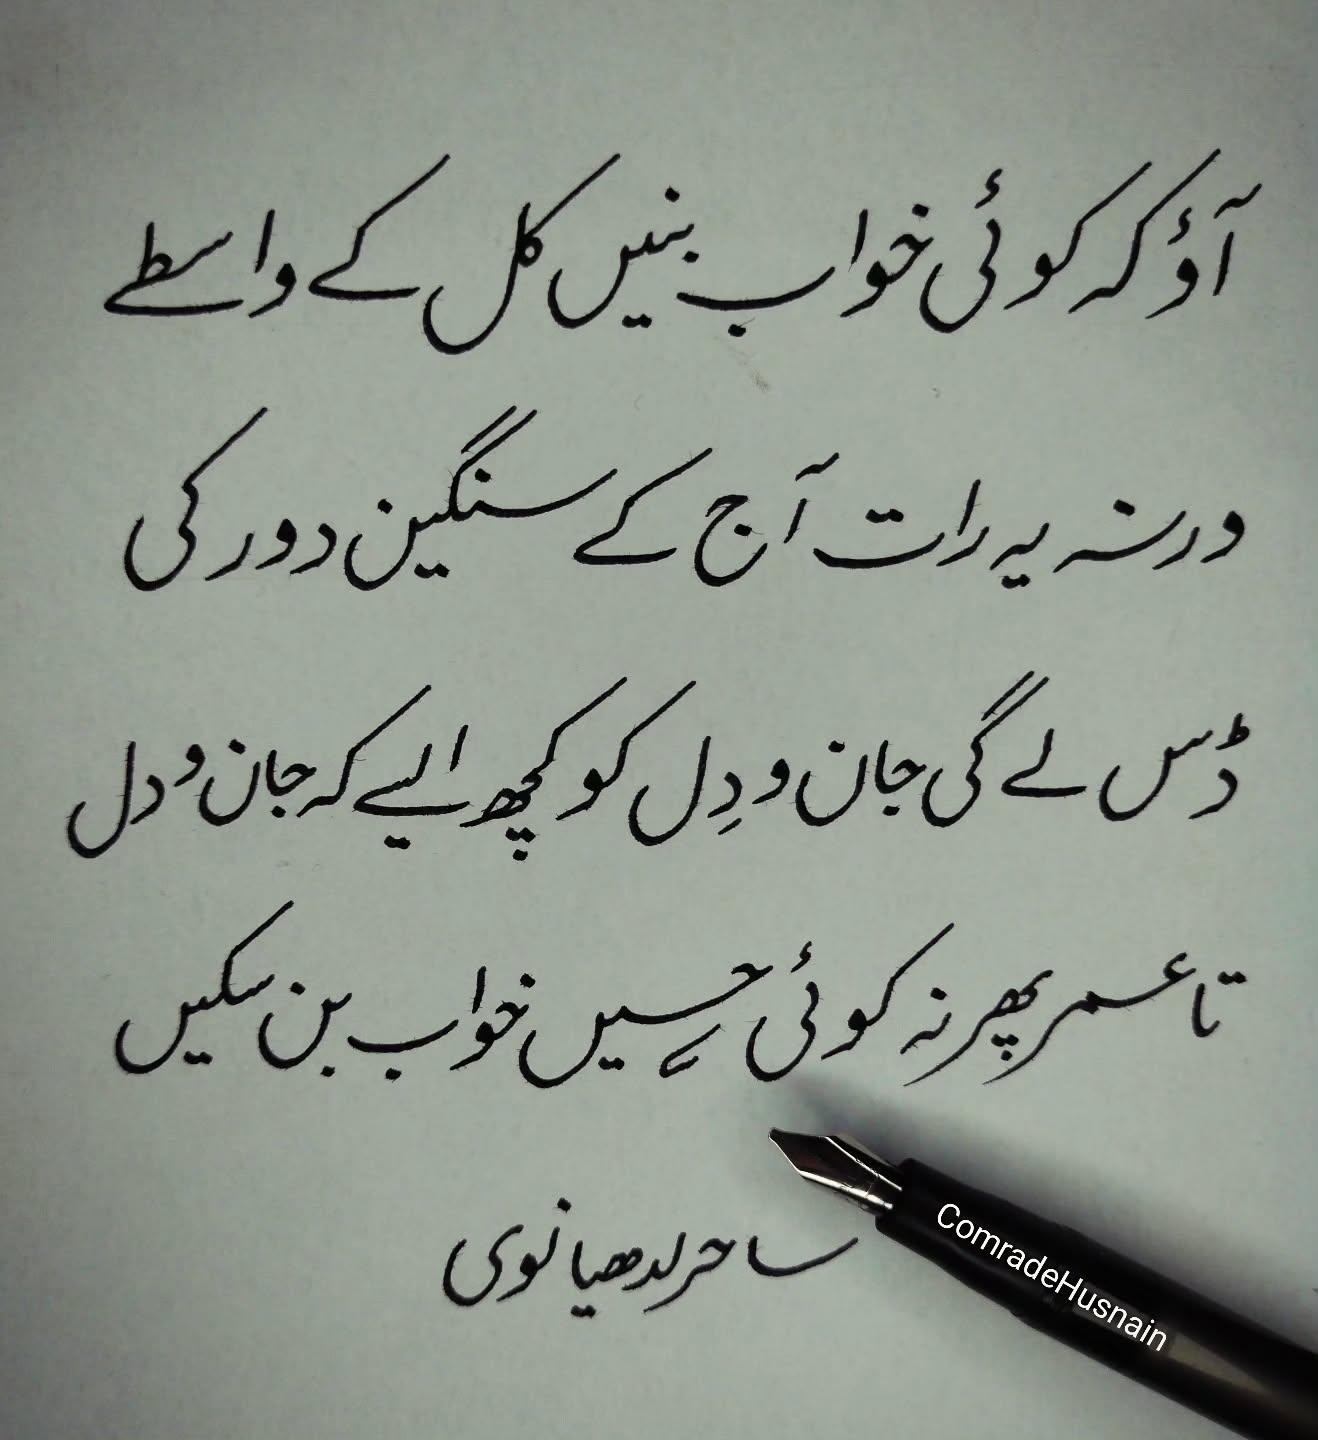 آؤ کہ کوئی خواب بنیں کل کے واسطے
ورنہ یہ رات آج کے سنگین دور کی
ڈس لے گی جان و دِل کو کچھ ایسے کہ جان و دل
تا عمر پھر نہ کوئی حسیں خواب بن سکیں
ساحر لدھیانوی
ComradeHusnain